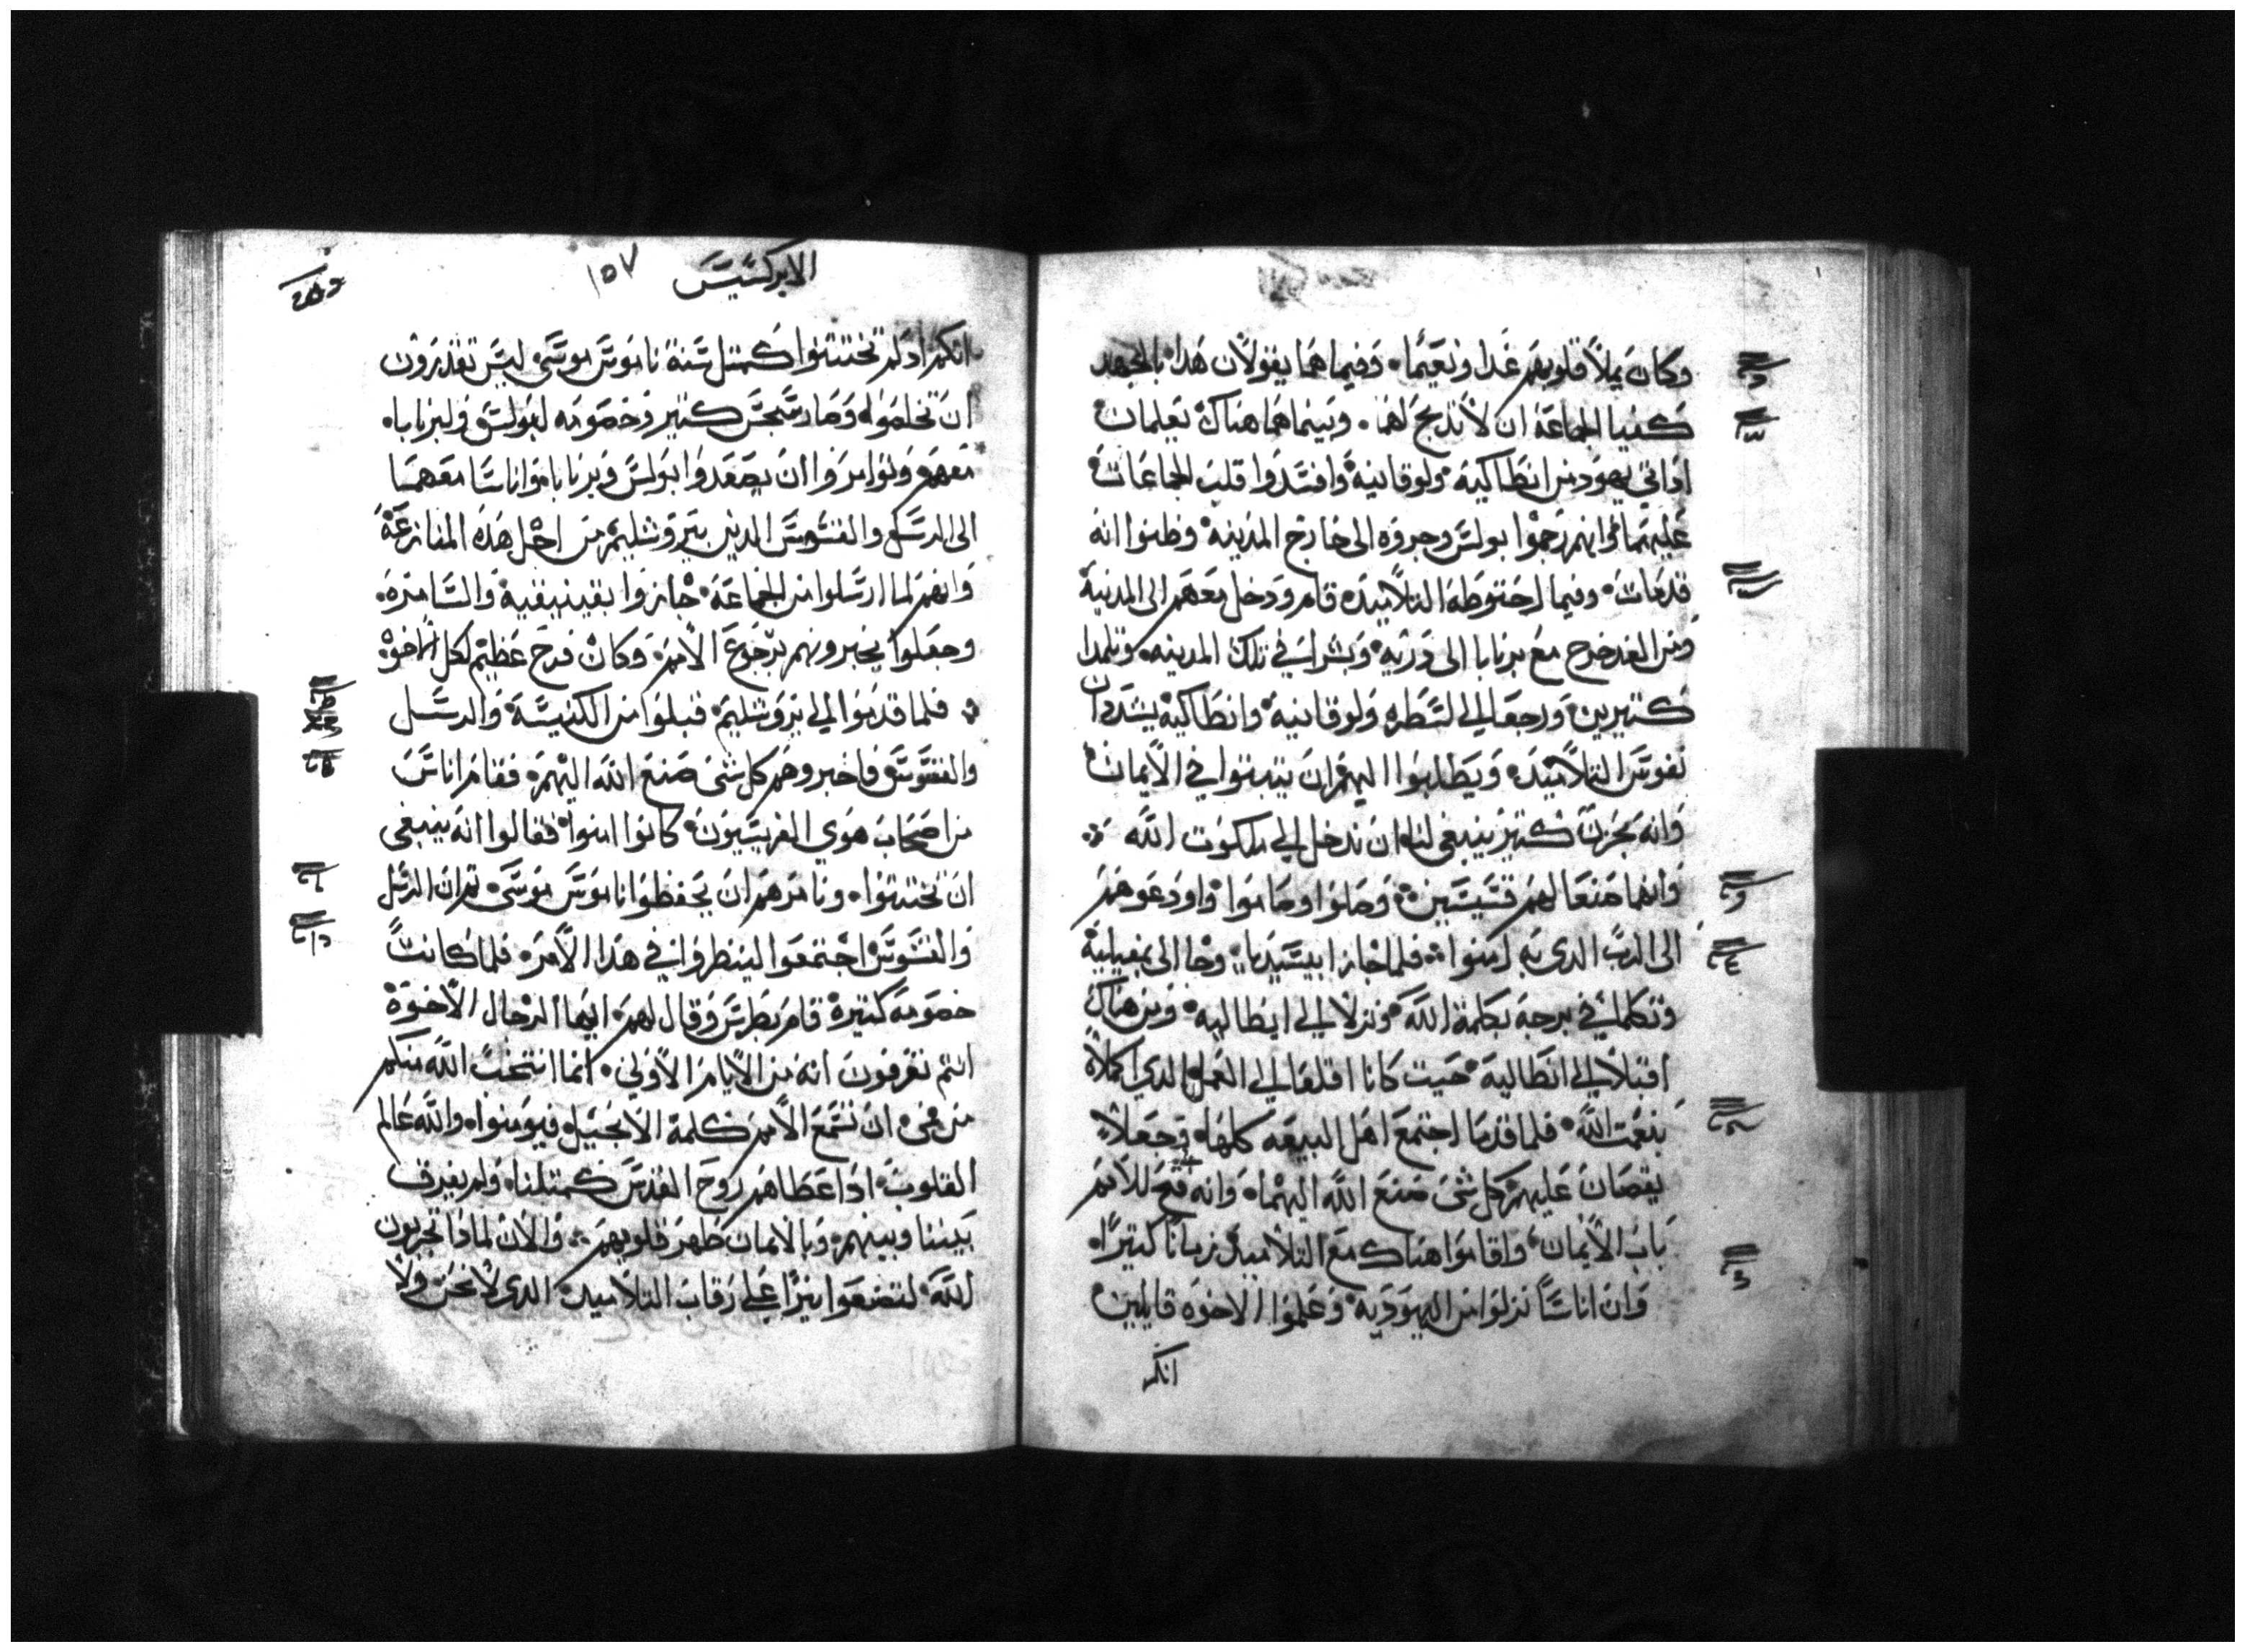 وكان يملأ قلوبهم غدا ونعيما. وفيما هما يقولان هدا بالجهد
كفيا الجماعة ان لا تدبح لهما. وبينما هما هناك يعلمان
اداتي يهود من انطاكية ولوقانية وافسدوا قلب الجماعات
عليهما وانهم رجموا بولس وجروه الى خارج المدينة وظنوا انه
قدمات. وفيما احتوطه التلاميده قام ودخل معهم الى المدينة
ومن الغد خرج مع برنابا الى دربه وبشرا في تلك المدينه. وتلمدا
كتيرين ورجعا الى لسطره ولوقانية وانطاكية يشددان
نفوس التلاميد. ويطلبوا اليهم ان يتبتوا في الأيمان
وانه بحزن كتير ينبغي لنا ان ندخل الى ملكوت الله
وانهما صنعا لهم قسيسين وصلوا وصاموا واودعوهم
الى الرب الدي به امنوا. فلما جازا بيسيديا وجا الى بمفيلية
وتكلما في برجة بكلمة الله ونزلا الى ايطاليه ومن هناك
اقبلا الى انطالية حيت كانا اقلعا الى العمل الدي اكملاه
بنعمت الله فلما قدما اجتمع اهل البيعه كلها. فجعلا
يقصان عليهم كل شى صنع الله اليهما. وانه فتح للامم
باب الأيمان. واقاموا هناك مع التلاميد زمانا كتيرا.
وان اناسا نزلوا من اليهودية وعلموا الاخوه قايلين
انكم
الابركسيس ١٥٧
انكم ادلم تختتنوا كمتل سنة ناموس موسى ليس تقدرون
ان تخلصوا. وصار سجس كتير وخصومه لبولس ولبرنابا.
معهم وتوامروا ان يصعدوا بولس وبرنابا واناسا معهما
الى الرسل والقسوس الدين بيروشليم من اجل هذه المنازعة
وانهم لما ارسلوا من الجماعة جازوا بفينيقية والسامرة.
وجعلوا يخبرونهم برجوع الأمم. وكان فرح عظيم لكل الأخوة
فلما قدموا الى يروشليم قبلوا من الكنيسة والرسل
والقسوس فاخبروهم كل شى صنع الله اليهم. فقام اناس
من اصحاب هوي الفريسيون كانوا امنوا فقالوا انه ينبغي
ان تختتنوا. ونامرهم ان يحفظوا ناموس موسى تم ان الرسل
والقسوس اجتمعوا لينظروا في هدا الأمر. فلما كانت
خصومة كتيرة قام بطرس وقال لهم ايها الرجال الأخوة
انتم تعرفون انه من الأيام الأولي. انما انتخب الله منكم
من فمى ان تسمع الأمم كلمة الأنجيل فيومنوا. والله عالم
القلوب. اد اعطاهم روح القدس كمتلنا. ولم يفرق
بيننا وبينهم. وبالأيمان طهر قلوبهم. والأن لماذا تجربون
الله لتضعوا نيرا على رقاب التلاميد الدي لا نحن ولا